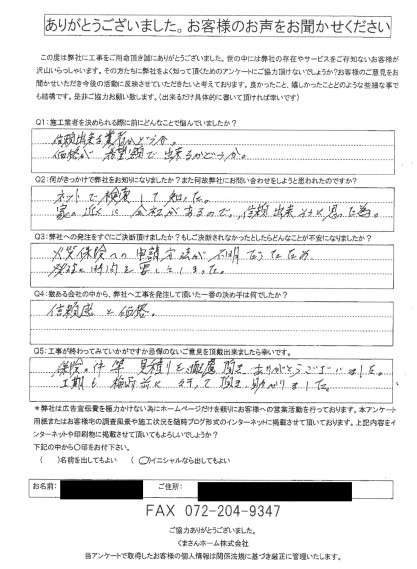 ありがとうございました。お客様のお声をお聞かせください
この度は弊社に工事をご用命頂き誠にありがとうございました。世の中には弊社の存在やサービスをご存知ないお客様が
沢山いらっしゃいます。その方たちに弊社をよく知って頂くためのアンケートにご協力頂けないでしょうか?お客様のご意見をお
聞かせいただき今後の活動に反映させていただきたいと考えております。良かったこと、嬉しかったことどのような些細な事で
も結構です。是非ご協力お願い致します。(出来るだけ具体的に書いて頂ければ幸いです)
Q1:施工業者を決められる際に前にどんなことで悩んでいましたか?
信頼出来る業者かどうか。
価格が希望額で出来るかどうか。
Q2:何がきっかけで弊社をお知りになりましたか?また何故弊社にお問い合わせをしようと思われたのですか?
ネットで検索して知った。
家の近くに会社があるので、信頼出来そうに思った為。
Q3:弊社への発注をすぐにご決断頂けましたか?もしご決断されなかったとしたらどんなことが不安になりましたか?
火災保険への申請方法が不明だったため
発注に時間を要しました。
Q4:数ある会社の中から、弊社へ工事を発注して頂いた一番の決め手は何でしたか?
信頼感と価格。
Q5:工事が終わってみていかがですか忌憚のないご意見を頂戴出来ましたら幸いです。
保険の件等 見積りを配慮頂き、ありがとうございました。
工期も梅雨前に行って頂き、助かりました。
*弊社は広告宣伝費を極力かけない為にホームページだけを頼りにお客様への営業活動を行っております。本アンケート
用紙またはお客様宅の調査風景や施工状況を随時ブログ形式のインターネットに掲載させて頂いております。上記内容をイ
ンターネットや印刷物に掲載させて頂いてもよろしいでしょうか?
下記の中から〇印をお付下さい。
( )名前を出してもよい (〇)イニシャルなら出してもよい
お名前: ご住所:
FAX 072-204-9347
ご協力ありがとうございました。
くまさんホーム株式会社
当アンケートで取得したお客様の個人情報は関係法規に基づき厳正に管理いたします。